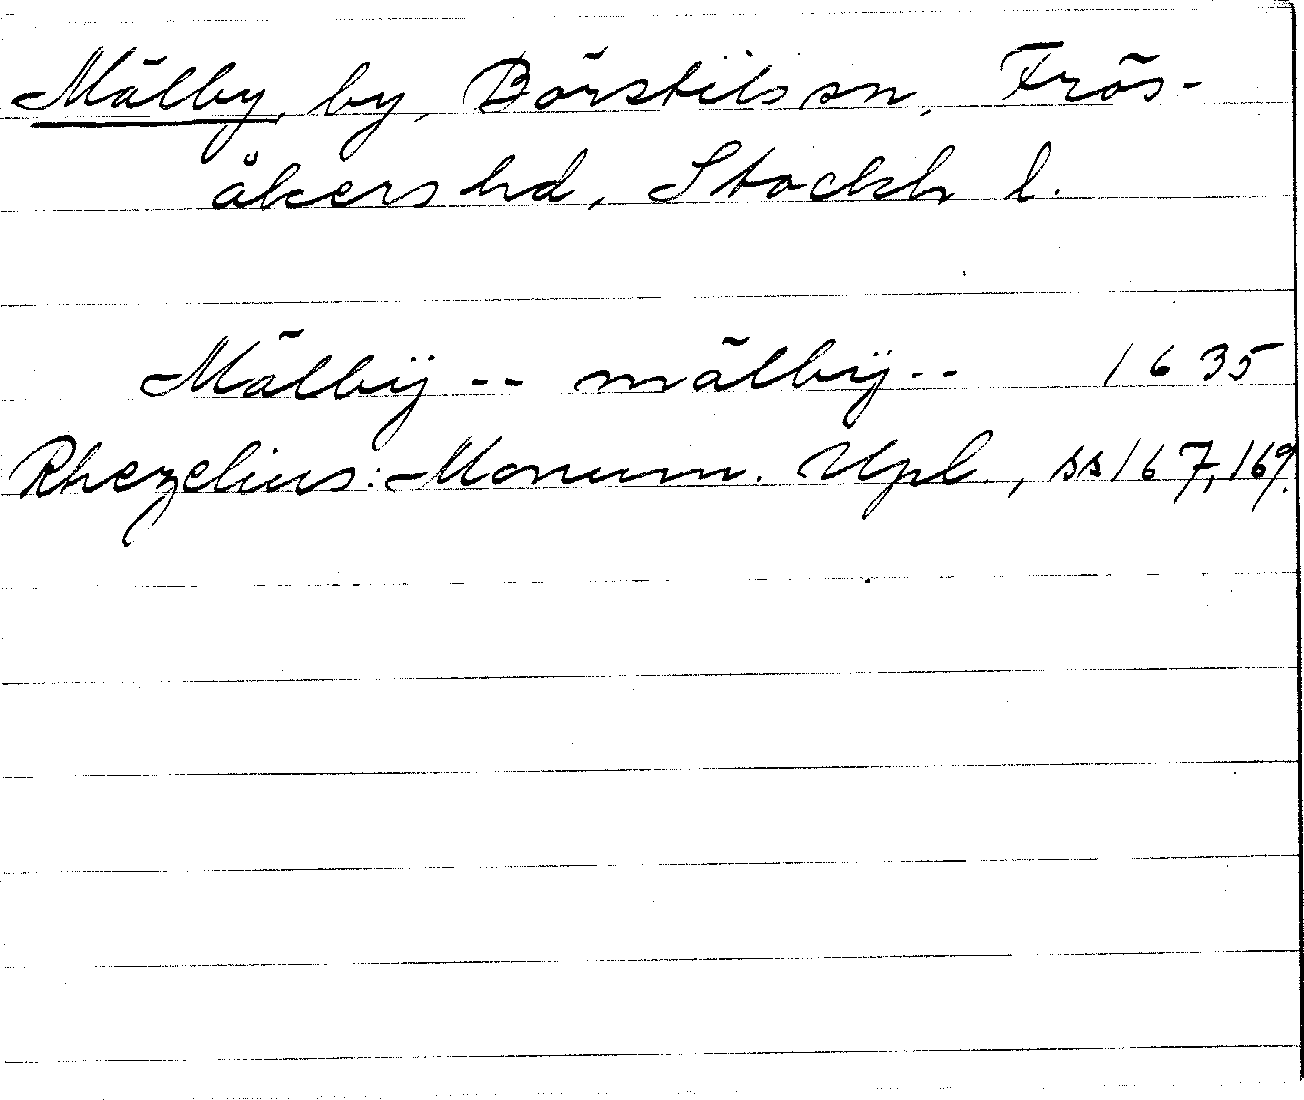 Mälby, by, Börstils sn, Frös-
åkers hd, Stockh l.
Mälbÿ -- mälbÿ -- 1635
Rhezelius: Monum. Upl., ss 167, 169.